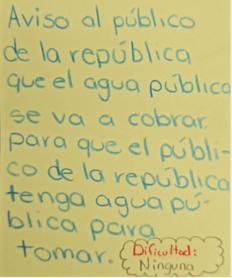 Aviso al público
de la república
que el agua pública
se va a cobrar,
para que el públi-
co de la república
tenga agua pú-
blica para
tomar.
Dificultad:
Ninguna